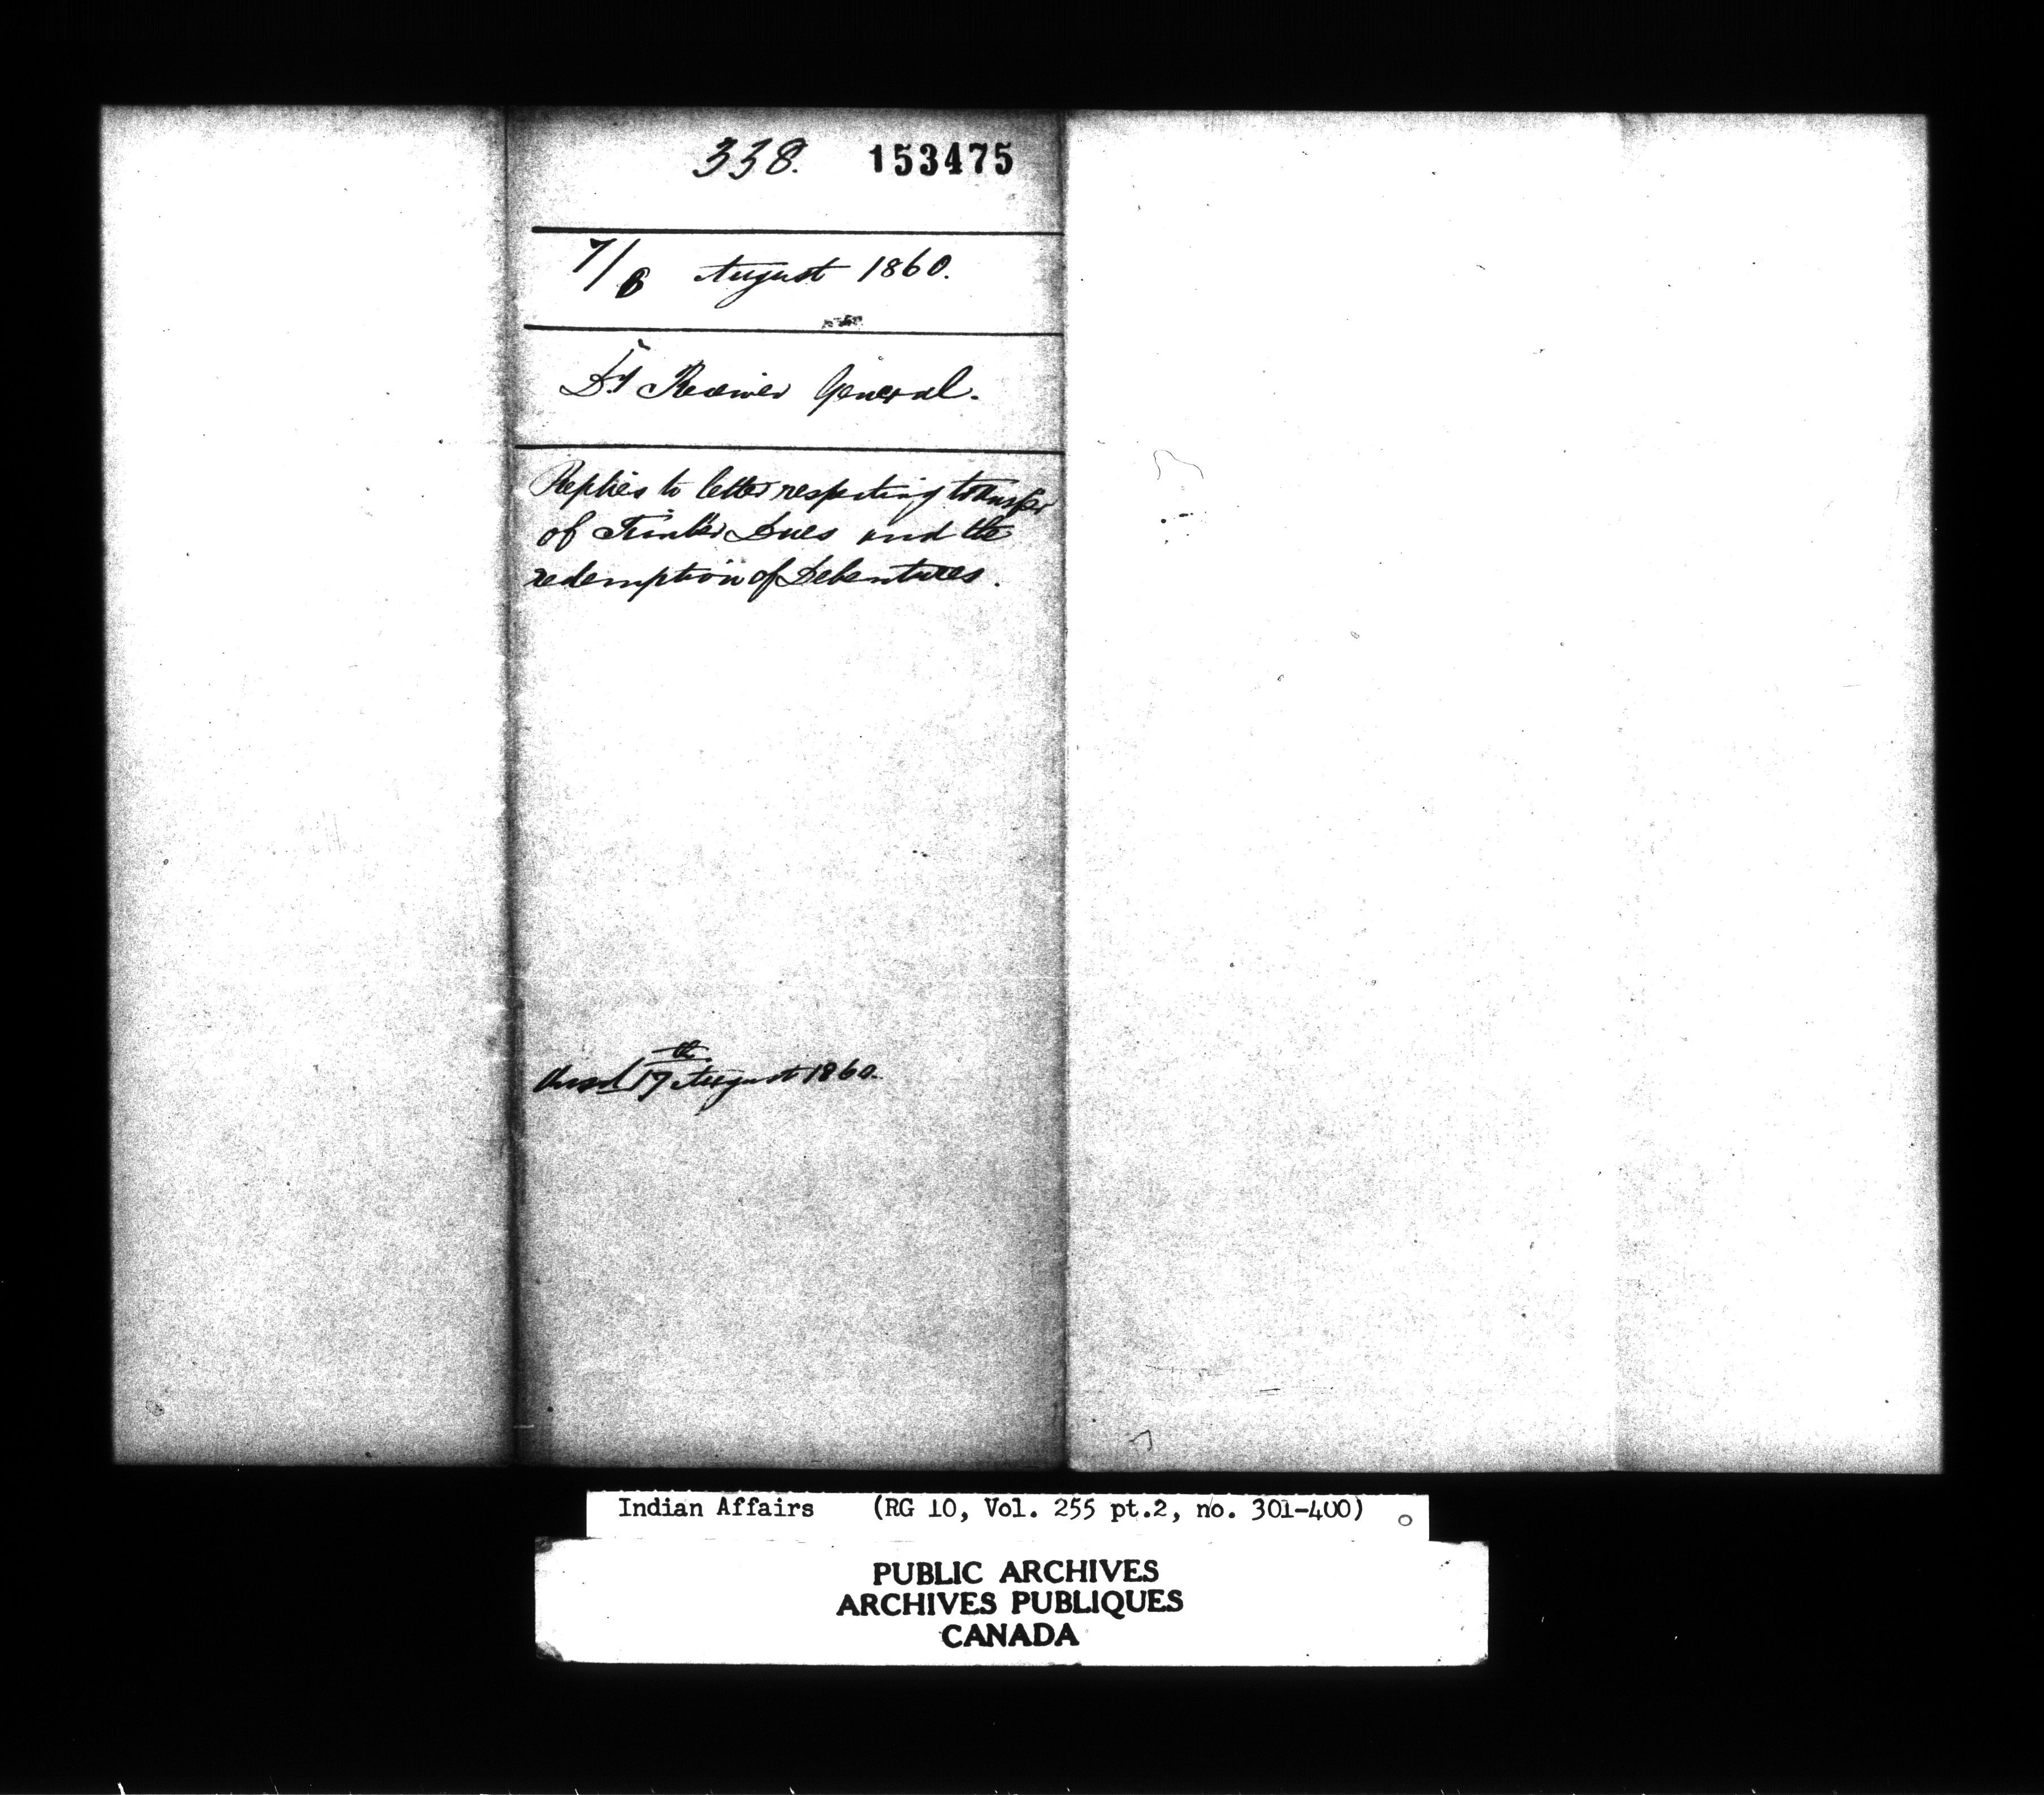 338. 153475
7/8 August 1860.
Dy Receiver General.
Replies to letter respecting transfer
of Timber Dues and the
redemption of Debentures.
Ansd 17th August 1860.
Indian Affairs (RG 10, Vol. 255 pt.2, no. 301-400)
PUBLIC ARCHIVES
ARCHIVES PUBLIQUES
CANADA